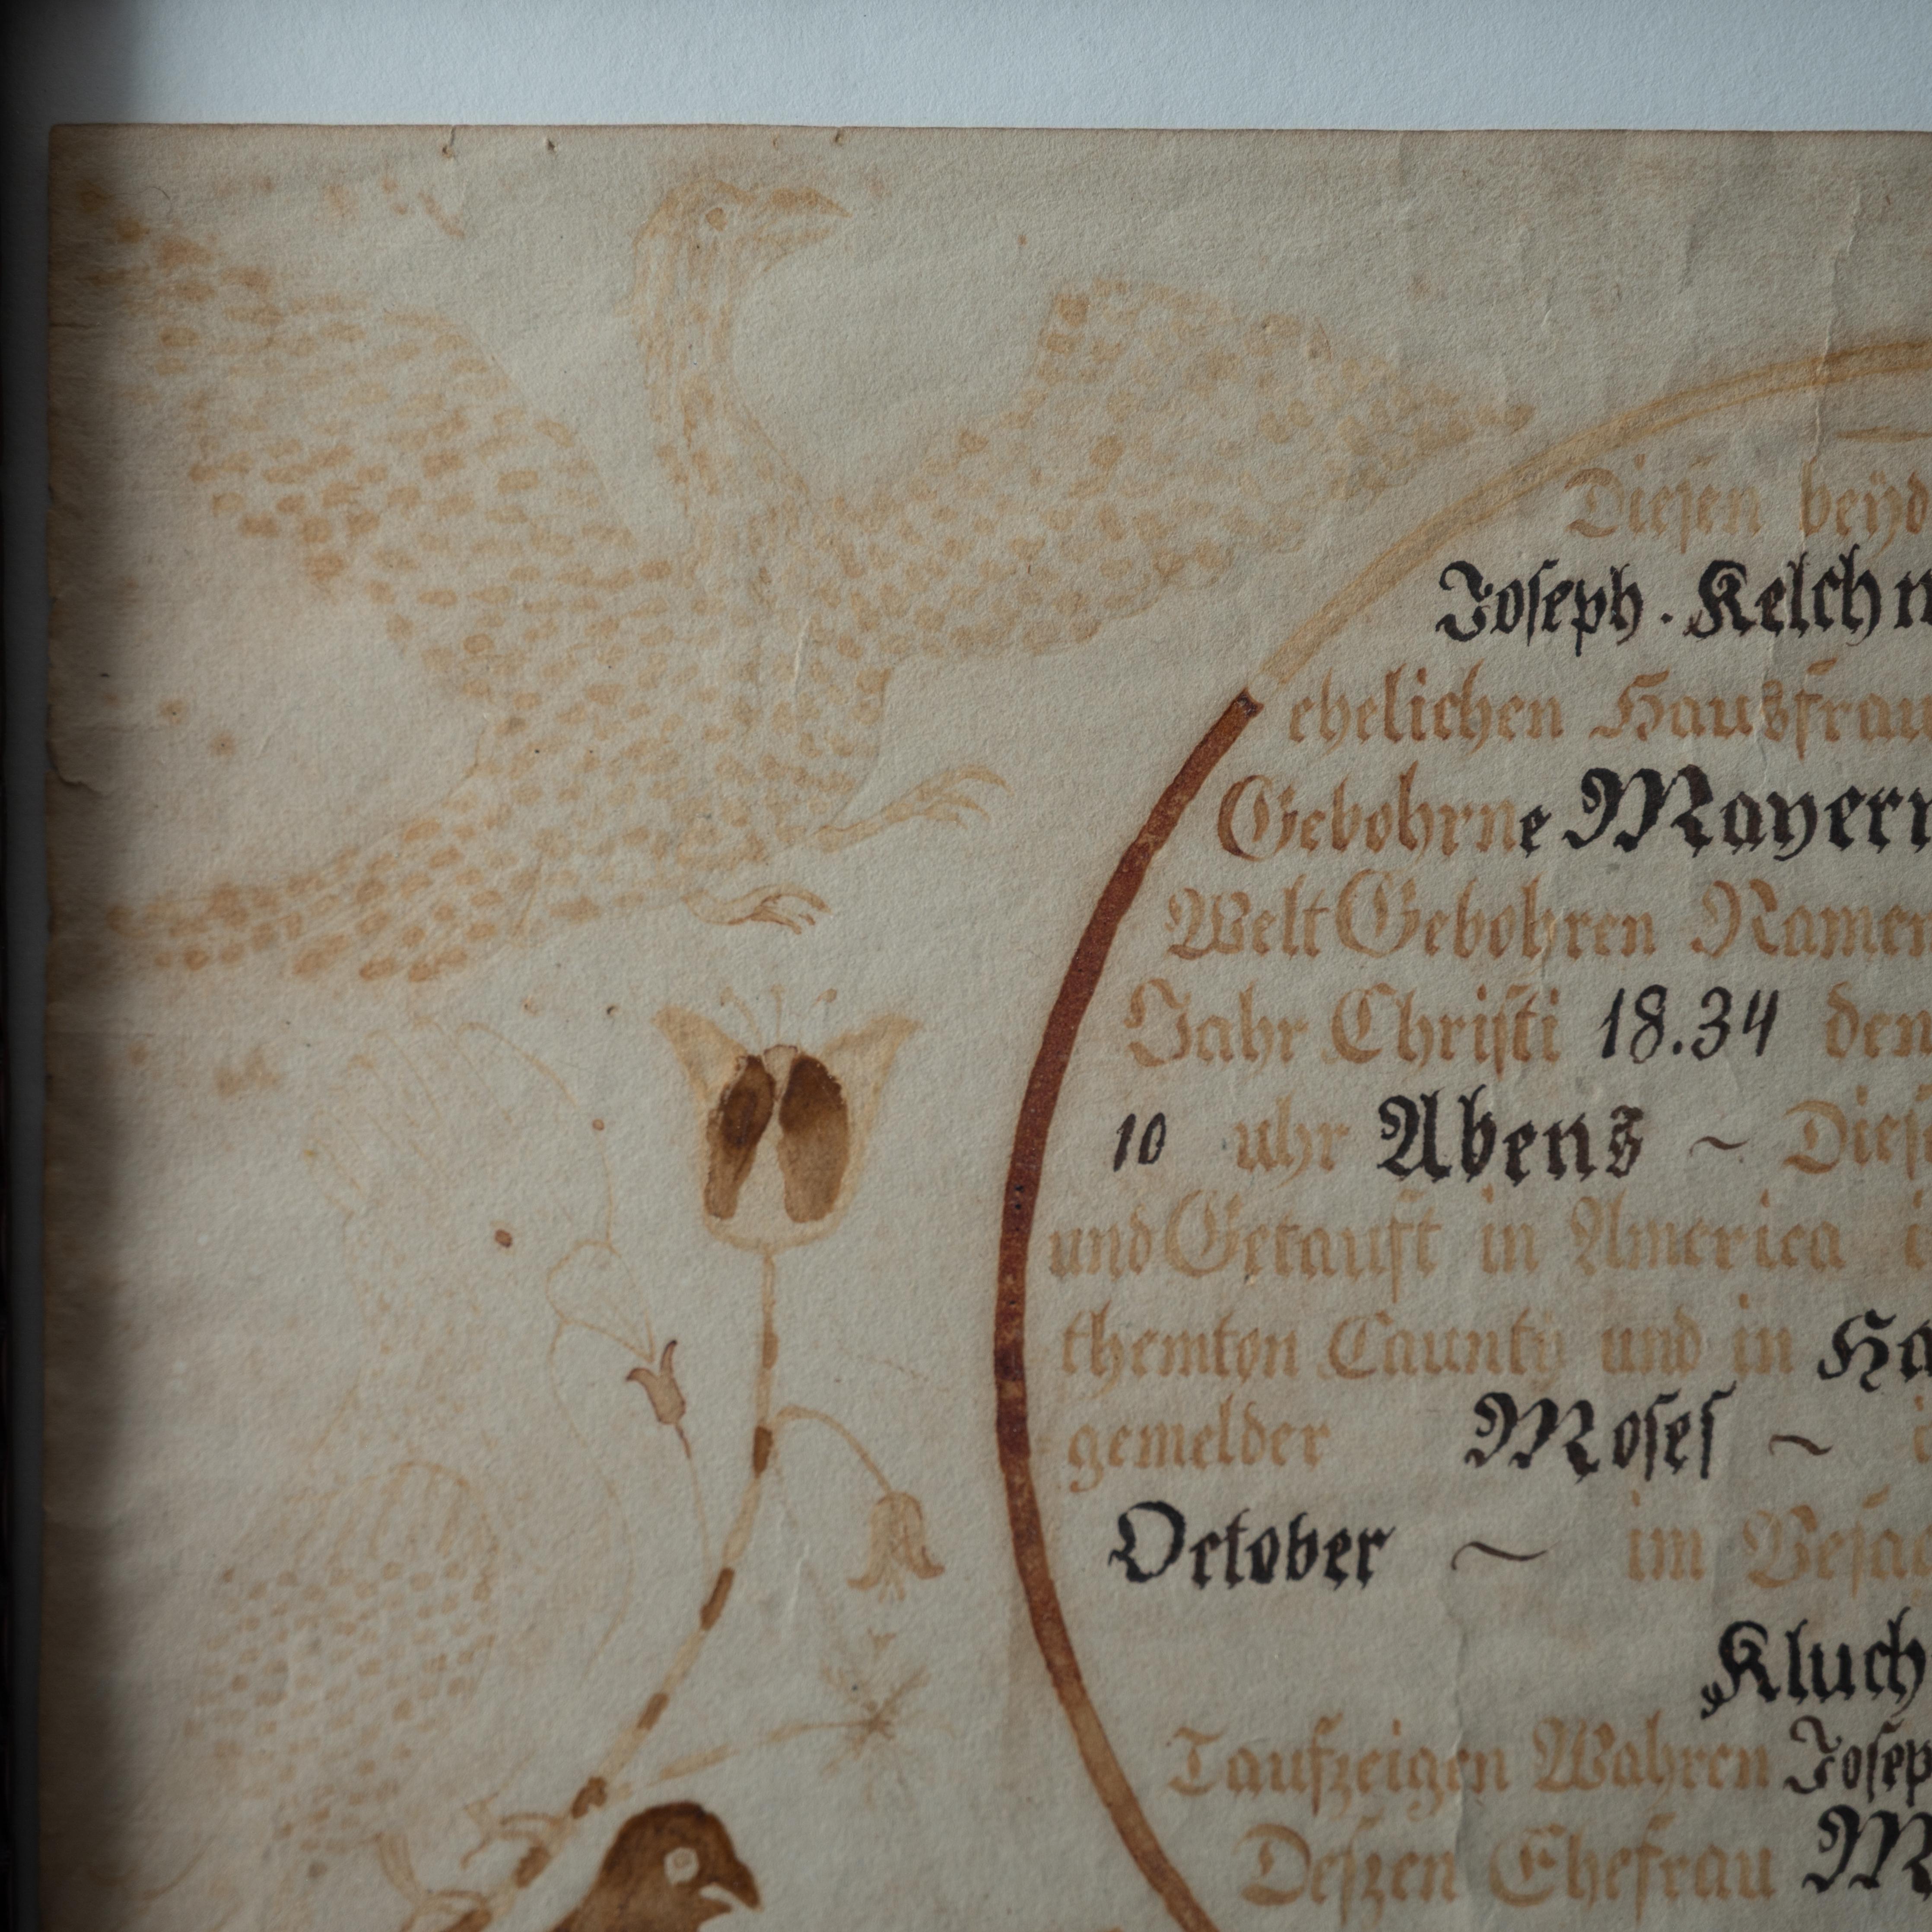 Diesen beyd
Joseph. Kelchn
ehelichen Hausfrau
Gebohrne Mayern
Welt Gebohren Namen
Jahr Christi 18.34 den
10 uhr Abens ~ Dies
und Getauft in America i
themton Caunty und in Ha
gemelder Moses ~ i
October ~ im Besa
Kluch
Taufzeigen Wahren Josep
Deszen Ehefrau M